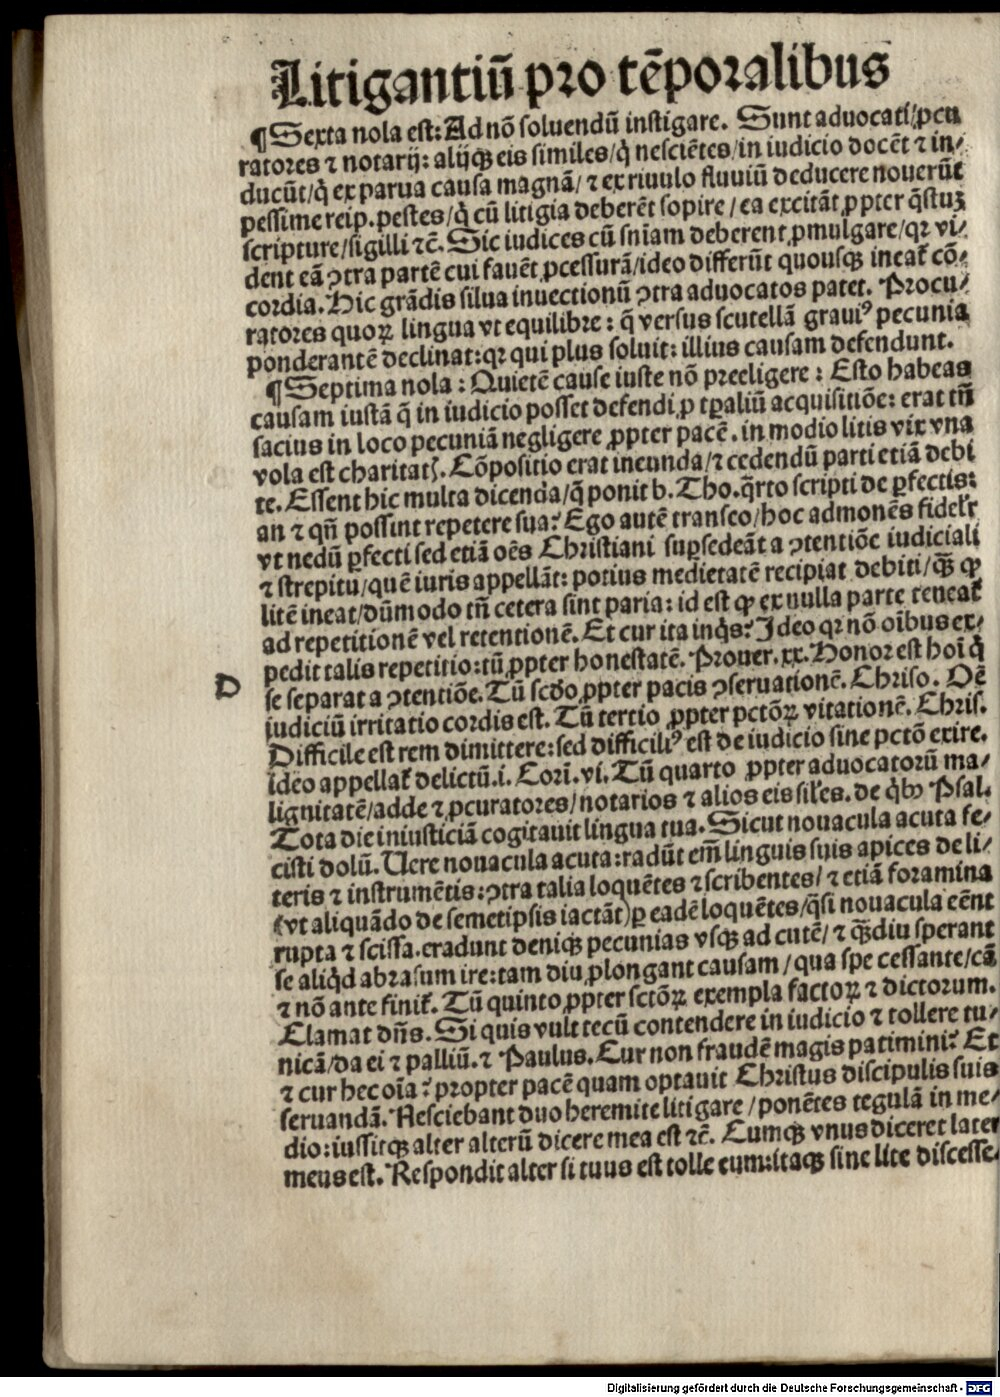 Litigantiū pro tēporalibus
¶Sexta nola est: Ad nō soluendū instigare. Sunt aduocati/ꝓcu
ratores ⁊ notarij: alijqꝫ eis similes/q̇ nesciētes/in iudicio docēt ⁊ in/
ducūt/q̇ ex parua causa magnā/⁊ ex riuulo fluuiū deducere nouerūt
pessime reip. pestes/q̇ cū litigia deberēt sopire/ea excitāt ꝓpter q̄stuꝫ
scripture/sigilli ⁊c̄. Sic iudices cū sniam deberent ꝓmulgare/qꝛ vi/
dent eā ꝯtra partē cui fauēt ꝓcessurā/ideo differūt quousqꝫ ineat̄ cō/
cordia. Hic grādis silua inuectionū ꝯtra aduocatos patet. Procu/
ratores quoꝝ lingua vt equilibre: q̄ versus scutellā grauiꝰ pecunia
ponderantē declinat: qꝛ qui plus soluit: illius causam defendunt.
¶Septima nola: Quietē cause iuste nō preeligere: Esto habeas
causam iustā q̄ in iudicio posset defendi ꝓ tꝑaliū acquisitiōe: erat tn̄
sacius in loco pecuniā negligere ꝓpter pacē. in modio litis vix vna
vola est charitatꝭ. Cōpositio erat ineunda/⁊ cedendū parti etiā debi
te. Essent hic multa dicenda/q̄ ponit b. Tho. q̄rto scripti de ꝑfectis:
an ⁊ qn̄ possint repetere sua? Ego autē transeo/hoc admonēs fidelr̄
vt nedū ꝑfecti sed etiā oēs Christiani suꝑsedeāt a ꝯtentiōe iudiciali
⁊ strepitu/quē iuris appellāt: potius medietatē recipiat debiti/qꝫ̄ ꝙ
litē ineat/dūmodo tn̄ cetera sint paria: id est ꝙ ex nulla parte teneat̄
ad repetitionē vel retentionē. Et cur ita inq̇s? Ideo qꝛ nō oībus ex/
pedit talis repetitio: tū ꝓpter honestatē. Prouer. xx. Honor est hoī q̇
D
se separat a ꝯtentiōe. Tū scd̄o ꝓpter pacis ꝯseruationē. Chriso. Oē
iudiciū irritatio cordis est. Tū tertio ꝓpter pctōꝝ vitationē. Chris.
Difficile est rem dimittere: sed difficiliꝰ est de iudicio sine pctō exire.
ideo appellat̄ delictū. i. Cori. vi. Tū quarto ꝓpter aduocatorū ma/
lignitatē/adde ⁊ ꝓcuratores/notarios ⁊ alios eis siles. de q̇bꝰ Psal.
Tota die iniusticiā cogitauit lingua tua. Sicut nouacula acuta fe/
cisti dolū. Vere nouacula acuta: radūt em̄ linguis suis apices de li/
teris ⁊ instrumētis: ꝯtra talia loquētes ⁊ scribentes/⁊ etiā foramina
(vt aliquādo de semetipsis iactāt) ꝑ eadē loquētes/q̄si nouacula eēnt
rupta ⁊ scissa. eradunt deniqꝫ pecunias vsqꝫ ad cutē/⁊ qꝫ̄diu sperant
se aliq̇d abrasum ire: tam diu ꝓlongant causam/qua spe cessante/cā
⁊ nō ante finit̄. Tū quinto ꝓpter sctōꝝ exempla factoꝝ ⁊ dictorum.
Clamat dn̄s. Si quis vult tecū contendere in iudicio ⁊ tollere tu/
nicā/da ei ⁊ palliū. ⁊ Paulus. Cur non fraudē magis patimini? Et
⁊ cur hec oīa? propter pacē quam optauit Christus discipulis suis
seruandā. Nesciebant duo heremite litigare/ponētes tegulā in me/
dio: iussitqꝫ alter alterū dicere mea est ⁊c̄. Cumqꝫ vnus diceret later
meus est. Respondit alter si tuus est tolle eum: itaqꝫ sine lite discesse/
Digitalisierung gefördert durch die Deutsche Forschungsgemeinschaft - DFG